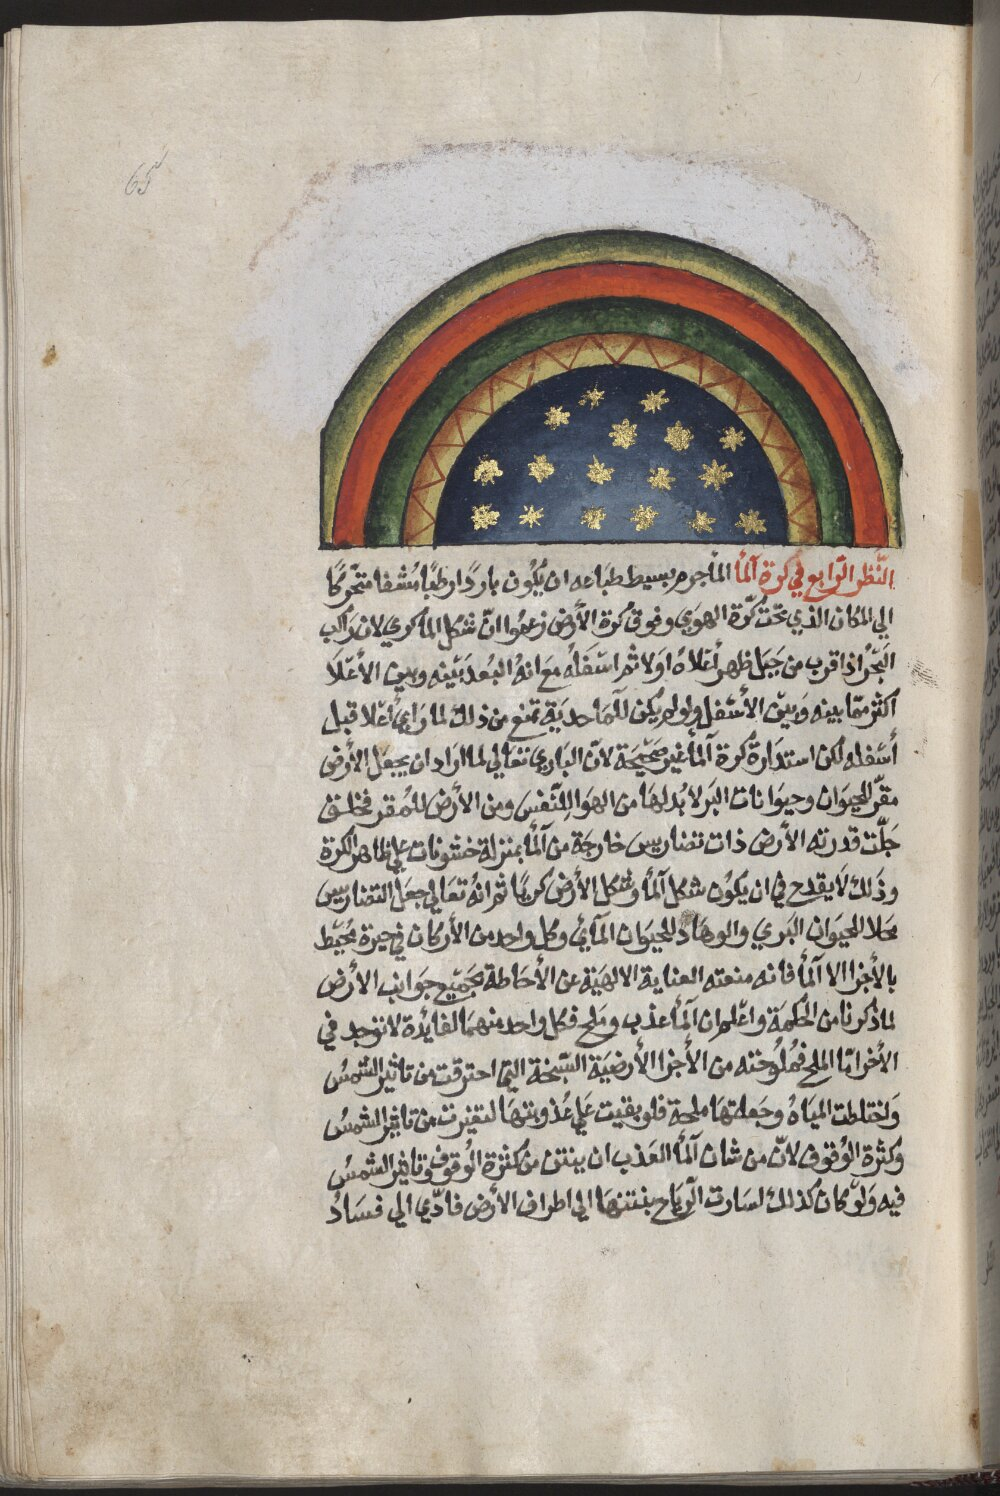 65
النَّظر الرّابع في كرة آلمأ المأ جرم بسيط طباعه ان يكُون باردًا رطبًا مُشفا متحّركًا
الي المكان الذي تحت كُرّة الهوي وفوق كُرة الأرض زعمُوا انّ شكل الما كري لان راكب
البَحُر اذا قرب من جَبَل ظهر أعلاهُ اولا ثم اسفلهُ مع انهُ البُعد بَيْنه وبين الأعلا
اكثر ممّا بينه وبين الأسفل ولو لم يكن للمَا حدبَة تمنع من ذلك لما رَاي أعلا قبل
أسفله لكن استدَارة كرة آلما غير صَحِيْحَة لانّ البَاري تعالي لما ارَاد ان يجعل الأرض
مقرّ الحيَوان وحيوَانات البَر لا بُد لهَا من الهوا للتنفس ومن الأرض للمُقر فخلق
جَلّت قدرته الأرض ذات تضاريس خارجَة من آلمأ بمنزلة خشونات علي ظاهر الكرة
وذَلك لَا يقدح في ان يكُون شكل آلمأ وشكل الأرض كريًا ثم انهُ تعَالي جعَل التضاريس
محَلا للحيَوان البَري والوهَاد للحيَوان المأئي وكل واحد من الأركان في حيزه مُحيْط
بالأجزا الا آلمأ فانه منعته العناية الالهيَة عن الأحَاطة بجَميْع جوَانب الأرض
لما ذكرنا من الحُكمَة واعْلم ان آلمأ عذب ومَلح فكل واحد منهمَا لفايُدة لا توجد في
الأخر امّا الملح فمُلُوحته من الأجزا الأرضيَة السّبخة التي احترقت من تاثير الشمسُ
وَاختلطت الميَاهُ وجَعلتهَا ملحة فلو بقيت عَلي عُذوبتهَا لتغيرت من تاثير الشمسُ
وكُثرة الوُقوف لانّ من شان آلمأ العَذب ان ينتن من كثرة الوُقوف وتاثير الشمسُ
فيه ولَوْ كان كذالك لسَارت الرّيَاح بنتنهَا الي اطراف الأرض فادّي الي فسَادُ